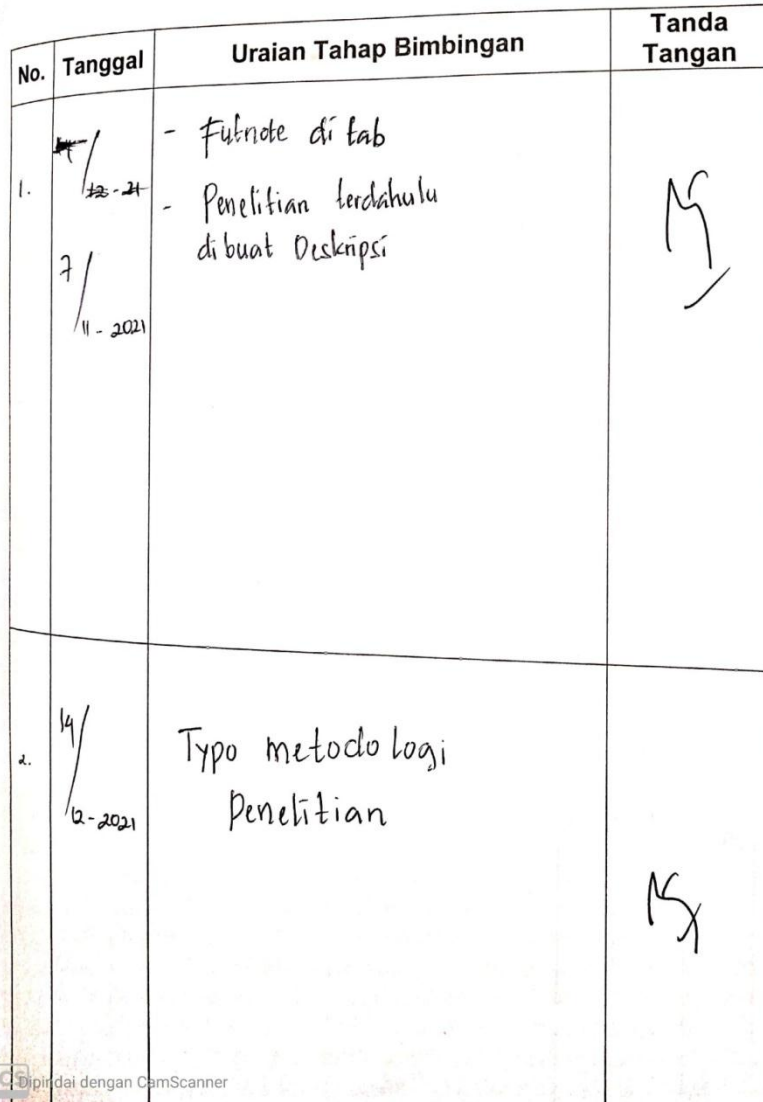 No. Tanggal Uraian Tahap Bimbingan Tanda Tangan
- Futnote di tab
1. 12-21
- Penelitian terdahulu
dibuat Deskripsi
7/11-2021
2. 14/12-2021
Typo metodologi
Penelitian
CS Dipindai dengan CamScanner